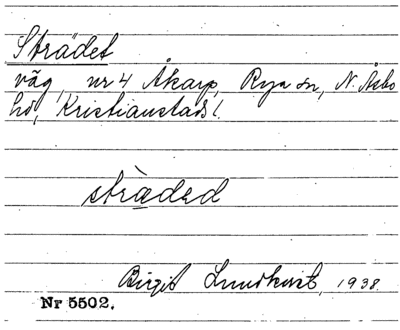 Strädet
väg, nr 4 Åkarp, Rya sn, N. Åsbo
hd, Kristianstads l.
stræded
Birgit Lundkvist, 1938
Nr 5502.